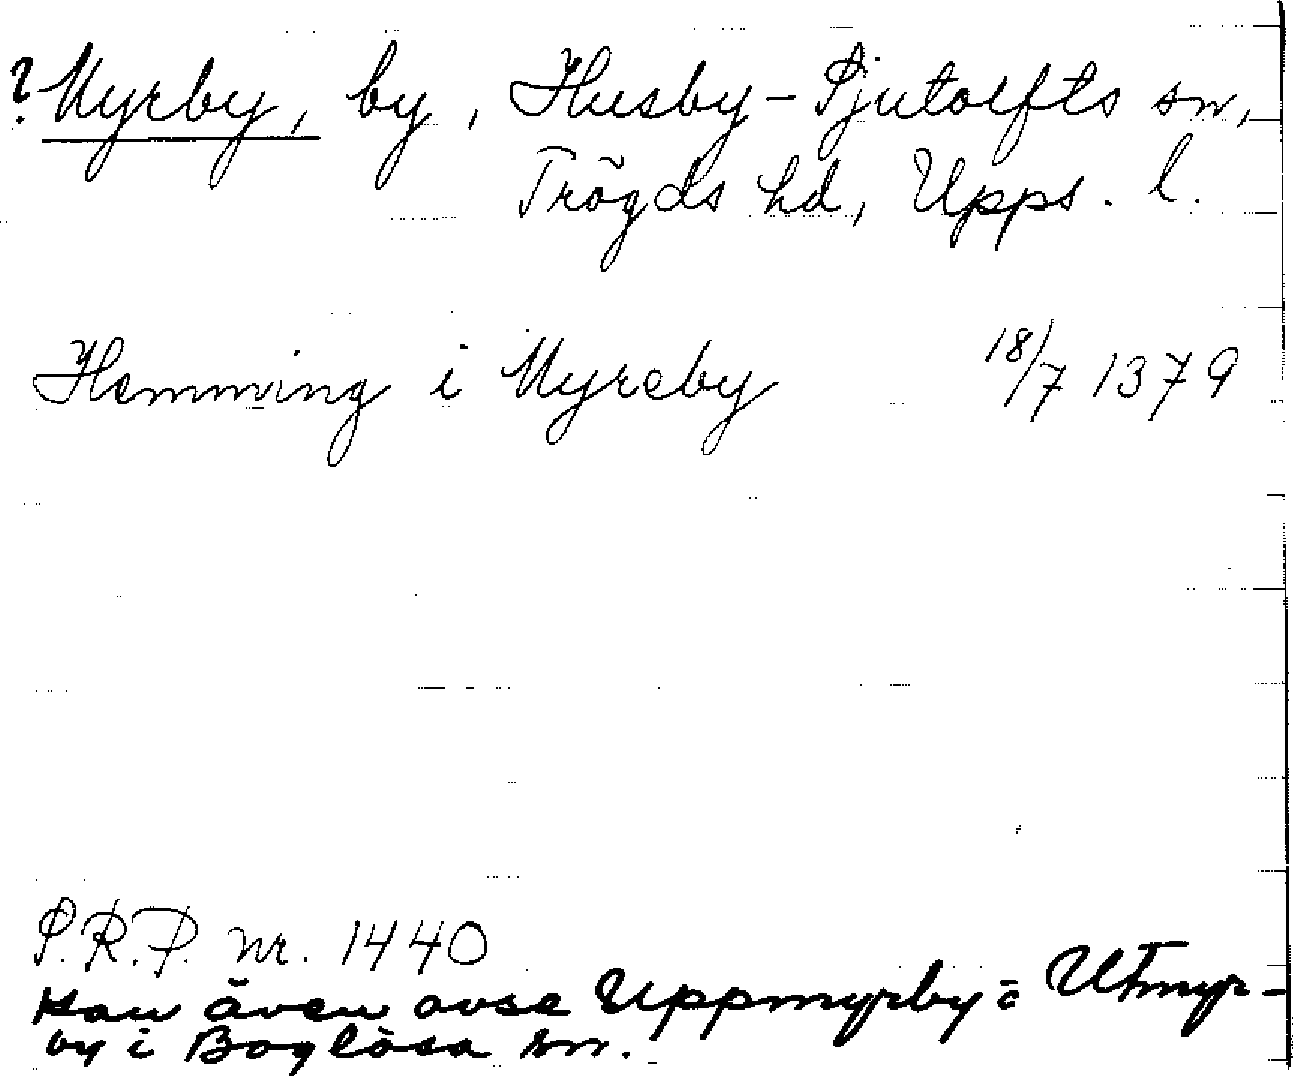 ? Myrby, by, Husby-Sjutolfts sn,
Trögds hd, Upps. l.
Hemming i Myreby 18/7 1379
S.R.P. nr. 1440
Kan även avse Uppmyrby o Utmyr-
by i Boglösa sn.